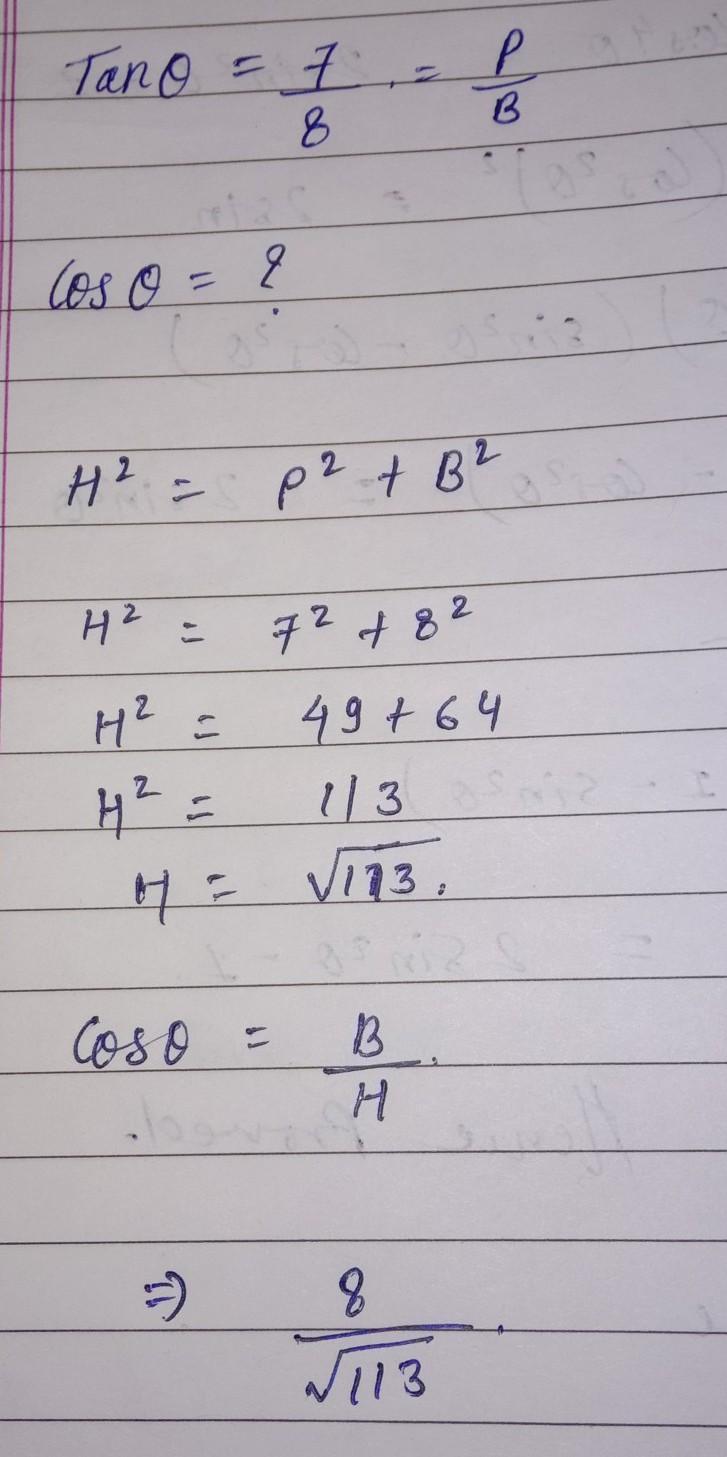 Tanθ = 7/8 . = P/B
Cosθ = ?
H² = P² + B²
H² = 7² + 8²
H² = 49 + 64
H² = 113
H = √113.
Cosθ = B/H.
⇒ 8/√113.